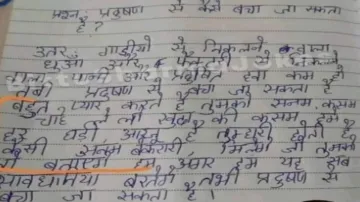 प्रश्न: प्रदुषण से कैसे बचा जा सकता
है?
उत्तर गाड़ीयो से निकलने वाला
धुआँ और फैक्ट्री से निकलने
वाला पानी और प्रदूषित हवा कम हो
तभी प्रदुषण से बचा जा सकता है
बहुत प्यार करते है तुमको सनम कसम
चाहे ले लो खुदा की कसम हमे
हर घड़ी आरजू है तुम्हारी होती है
कैसी सनम बेकरारी मिलोगे जो तुमको
तो बताएंगे हम अगर हम यह सब
सावधानिया बरतेगे तभी प्रदुषण से
बचा जा सकता है।